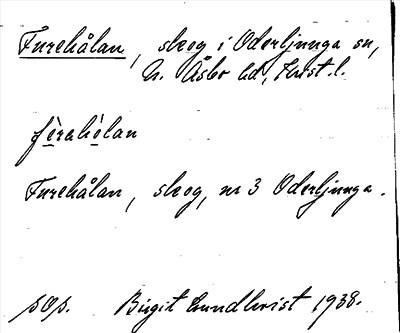 Furehålan, skog i Oderljunga sn,
N. Åsbo hd, Krist. l.
fèrahèlan
Furehålan, skog, nr 3 Oderljunga.
sOs. Birgit Lundkvist 1938.